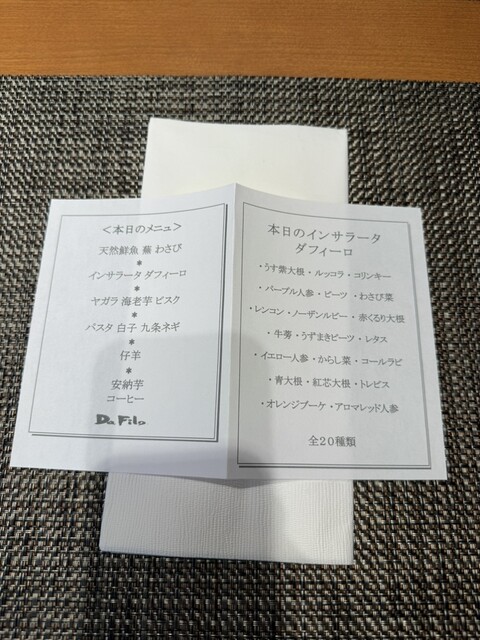 ＜本日のメニュー＞
天然鮮魚 蕪 わさび
*
インサラータ ダフィーロ
*
ヤガラ 海老芋 ビスク
*
パスタ 白子 九条ネギ
*
仔羊
*
安納芋
コーヒー
Da Filo
本日のインサラータ
ダフィーロ
・うす紫大根・ルッコラ・コリンキー
・パープル人参・ビーツ・わさび菜
・レンコン・ノーザンルビー・赤くるり大根
・牛蒡・うずまきビーツ・レタス
・イエロー人参・からし菜・コールラビ
・青大根・紅芯大根・トレビス
・オレンジブーケ・アロマレッド人参
全20種類